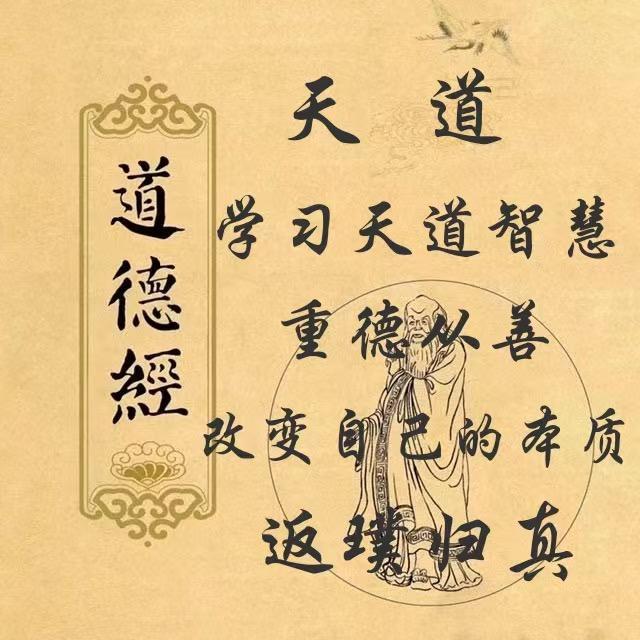 道德經
天道
学习天道智慧
重德从善
改变自己的本质
返璞归真